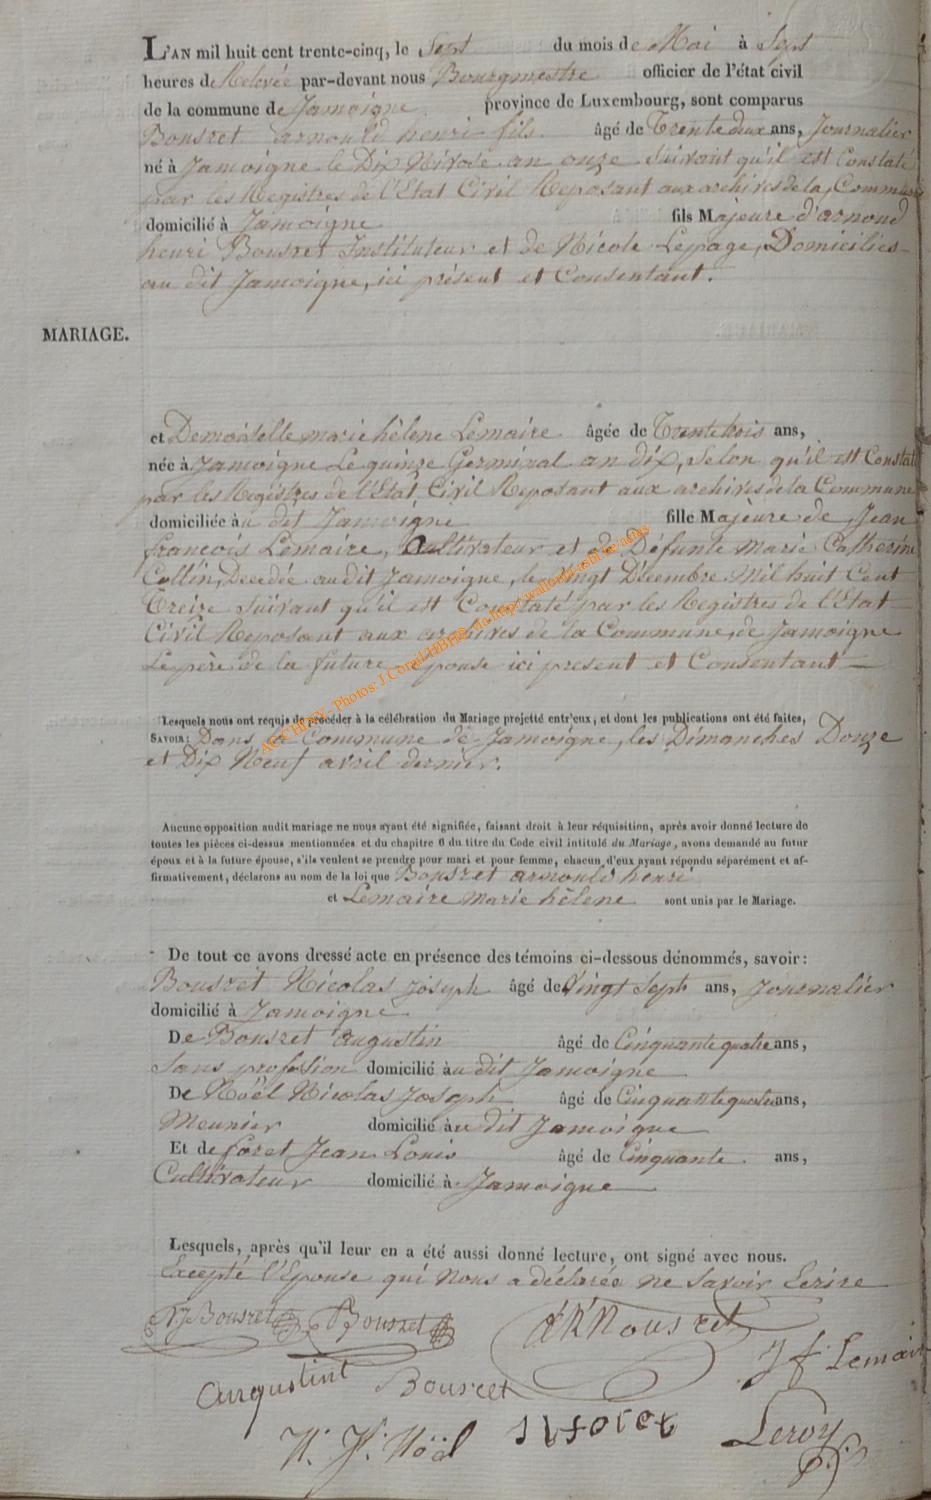 L'AN mil huit cent trente-cinq, le Sept du mois de Mai à Sept
heures de Relevée par-devant nous Bourgmestre officier de l'état civil
de la commune de Jamoigne province de Luxembourg, sont comparus
Bousret arnould henri fils âgé de Trente deux ans, Journalier
né à Jamoigne le Dix Nivose an onze Suivant qu'il est Constaté
par les Registres de l'Etat Civil Reposant aux archives de la Commune
domicilié à Jamoigne fils Majeure d'arnoud
henri Bousret Instituteur et de Nicole Lepage, Domiciliés
au dit Jamoigne, ici présent et Consentant.
MARIAGE.
et Demoiselle marie hèlene Lemaire âgée de Trente trois ans,
née à Jamoigne Le quinze Germinal an dix, Selon qu'il est Constaté
par les Registres de l'Etat Civil Reposant aux archives de la Commune
domiciliée àu dit Jamoigne fille Majeure de Jean
françois Lemaire, Cultivateur et de Défunte Marie Catherine
Collin, Decedée audit Jamoigne, le vingt Décembre Mil huit Cent
Treize Suivant qu'il est Constaté par les Registres de l'Etat
Civil Reposant aux archives de la Commune de Jamoigne
Le père de la future Epouse ici présent et Consentant
ACCHPHV - Photos: J.Cornil HBHP via http:wallonia-asbl.be/actes
Lesquels nous ont requis de procéder à la célébration du Mariage projetté entr'eux, et dont les publications ont été faites,
SAVOIR: Dans la Commune de Jamoigne, les Dimanches Douze
et Dix Neuf avril dernier.
Aucune opposition audit mariage ne nous ayant été signifiée, faisant droit à leur réquisition, après avoir donné lecture de
toutes les pièces ci-dessus mentionnées et du chapitre 6 du titre du Code civil intitulé du Mariage, avons demandé au futur
époux et à la future épouse, s'ils veulent se prendre pour mari et pour femme, chacun d'eux ayant répondu séparément et af-
firmativement, déclarons au nom de la loi que Bousret arnould henri
et Lemaire marie hèlene sont unis par le Mariage.
De tout ce avons dressé acte en présence des témoins ci-dessous dénommés, savoir:
Bousret Nicolas Joseph âgé de Vingt Sept ans, Journalier
domicilié à Jamoigne
De Bousret augustin âgé de Cinquante quatre ans,
Sans profession domicilié àu dit Jamoigne
De Noël Nicolas Joseph âgé de Cinquante quatre ans,
Meunier domicilié àu dit Jamoigne
Et de foret Jean Louis âgé de Cinquante ans,
Cultivateur domicilié à Jamoigne
Lesquels, après qu'il leur en a été aussi donné lecture, ont signé avec nous.
Excepté l'Epouse qui Nous a déclarée ne Savoir Ecrire
NJ Bousret Bousret AhBousret
J f Lemaire
Augustint Bouscet
N. J. Noël jlforet Leroy